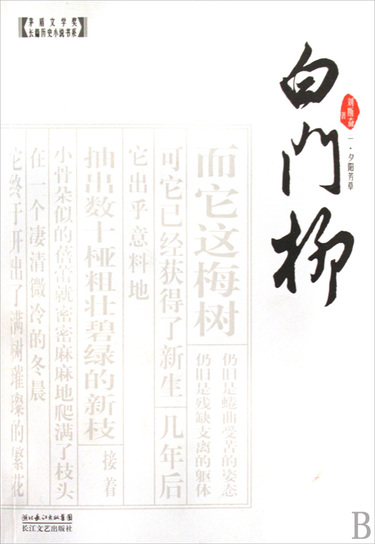 茅盾文学奖
长篇历史小说书系
白门柳
刘斯奋
著
一·夕阳芳草
而它这梅树
仍旧是虬曲受苦的姿态
仍旧是残缺支离的躯体
可它已经获得了新生
几年后
它出乎意料地
抽出数十桠粗壮碧绿的新枝
接着
小骨朵似的蓓蕾就密密麻麻地爬满了枝头
在一个凄清微冷的冬晨
它终于开出了满树璀璨的繁花
湖北长江出版集团
长江文艺出版社
B